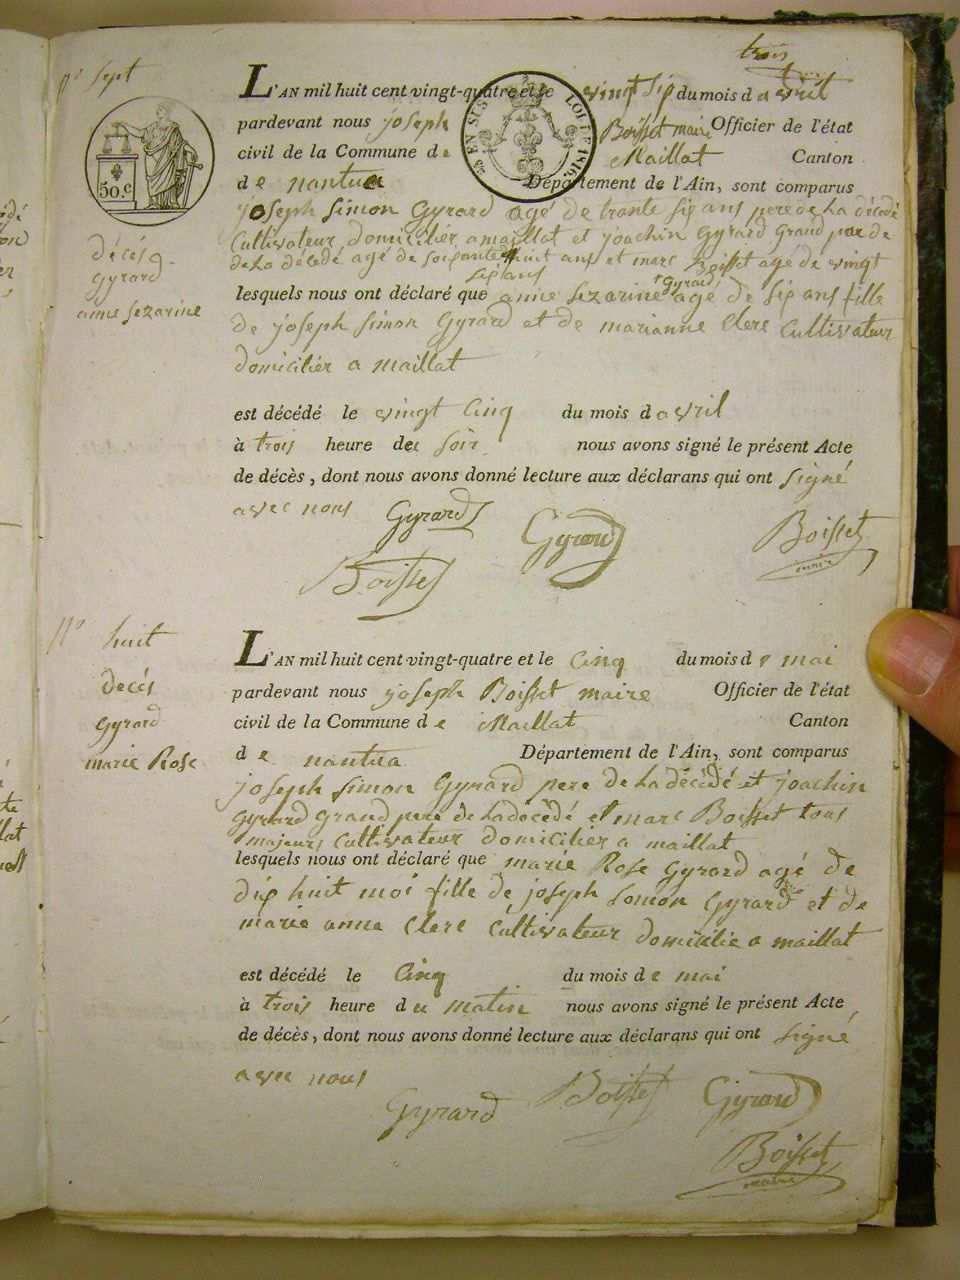 trois
n° sept
50.c
EN SUS LOI DE 1816.
décés
gyrard
anne sezarine
L'AN mil huit cent vingt-quatre et le vingt six du mois d avril
pardevant nous joseph Boisset maire Officier de l'état
civil de la Commune de Maillat Canton
de nantua Département de l'Ain, sont comparus
joseph simon Gyrard agé de trante six ans pere de la décédé
Cultivateur domicilier a maillat et joachin Gyrard grand pere de
de la décedé agé de soixante huit ans et marc Boisset age de vingt
six ans
lesquels nous ont déclaré que anne sezarine Gyrard agé de six ans fille
de joseph simon Gyrard et de marianne Clerc Cultivateur
domicilier a maillat
est décédé le vingt Cinq du mois d avril
à trois heure du soir nous avons signé le présent Acte
de décès, dont nous avons donné lecture aux déclarans qui ont signé
avec nous Gyrard Gyrard Boisset
maire
Boisset
n° huit
decés
gyrard
marie Rose
L'AN mil huit cent vingt-quatre et le Cinq du mois de mai
pardevant nous joseph Boisset maire Officier de l'état
civil de la Commune de Maillat Canton
de nantua Département de l'Ain, sont comparus
joseph simon Gyrard pere de la décédé et joachin
gyrard grand pere de la décédé et marc Boisset tous
majeurs Cultivateur domicilier a maillat
lesquels nous ont déclaré que marie Rose Gyrard agé de
dix huit moi fille de joseph somon Gyrard et de
marie anne Clerc Cultivateur domicilie a maillat
est décédé le Cinq du mois de mai
à trois heure du matin nous avons signé le présent Acte
de décès, dont nous avons donné lecture aux déclarans qui ont signé
avec nous
Gyrard Boisset Gyrard
Boisset
maire